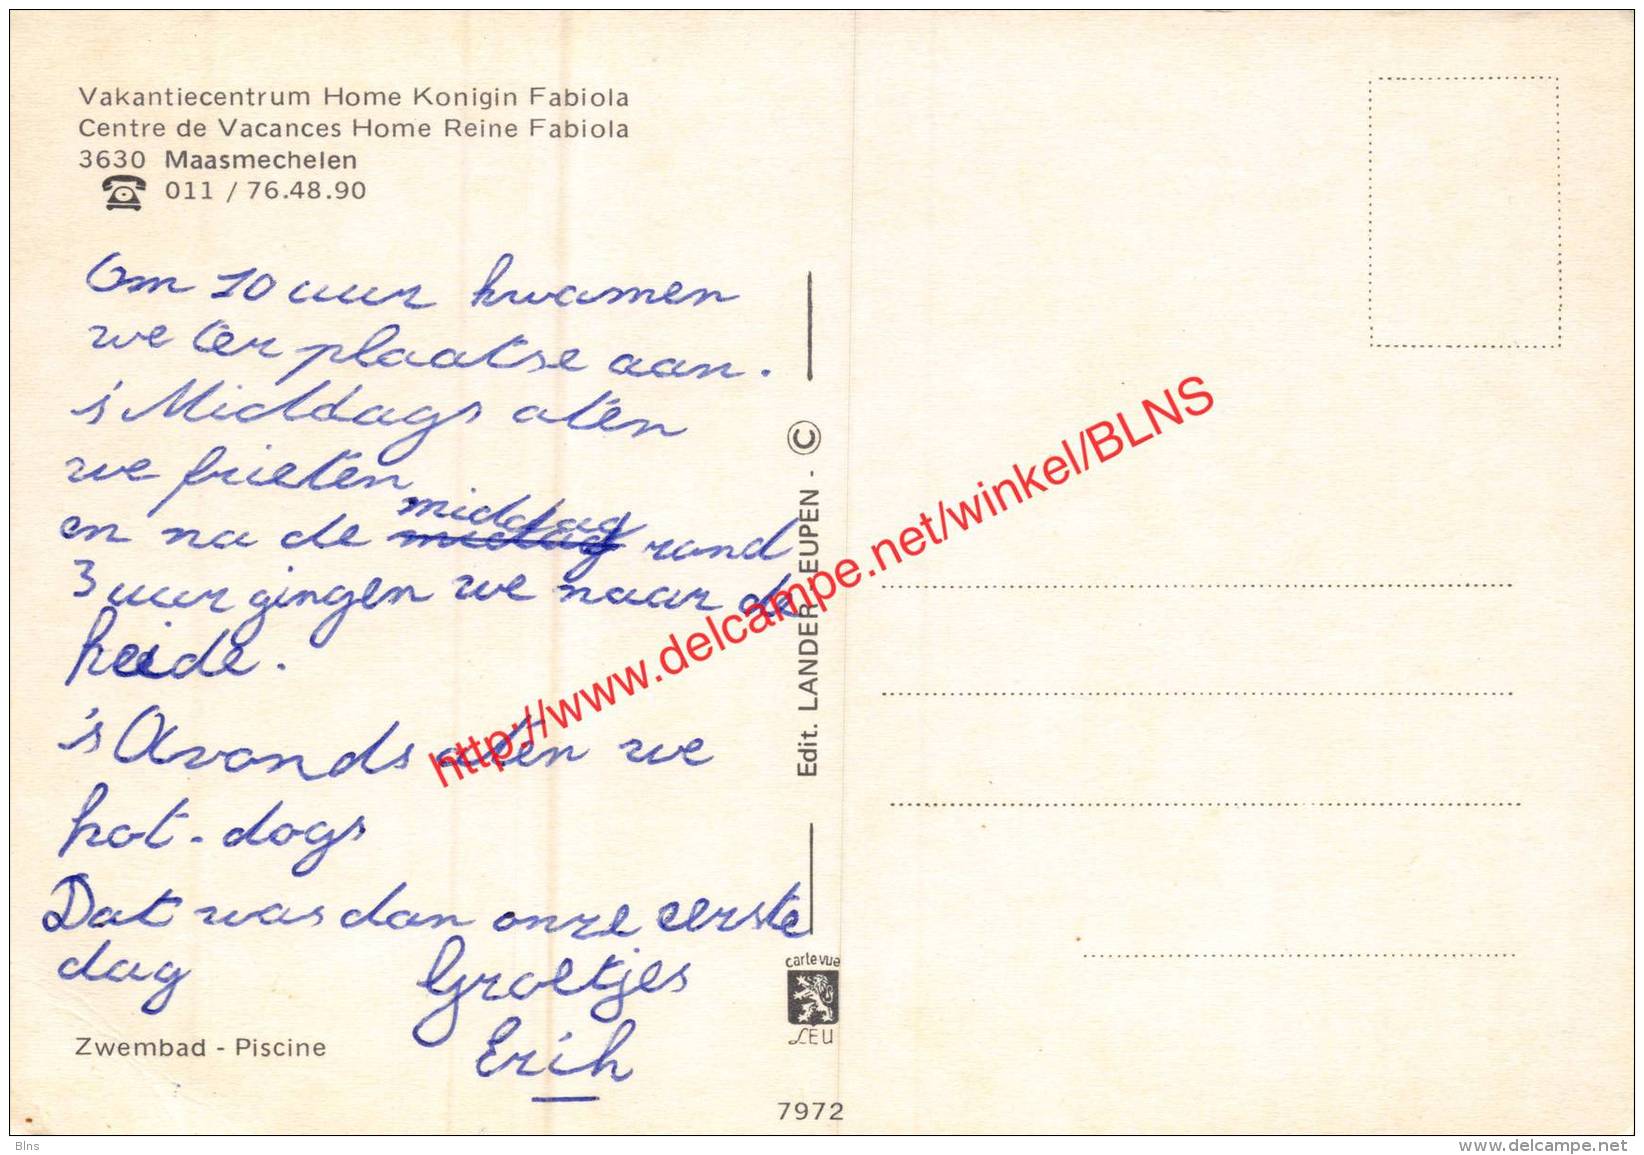 Vakantiecentrum Home Konigin Fabiola
Centre de Vacances Home Reine Fabiola
3630 Maasmechelen
011 / 76.48.90
Om 10 uur kwamen
we ter plaatse aan.
's Middags aten
we frieten
en na de midtag middag rond
3 uur gingen we naar de
heide.
's Avonds aten we
hot-dogs
Dat was dan onze eerste
dag Groetjes
Erih
Zwembad - Piscine
Edit. LANDER - EUPEN - ©
carte vue
LEU
7972
http://www.delcampe.net/winkel/BLNS
Blns
www.delcampe.net